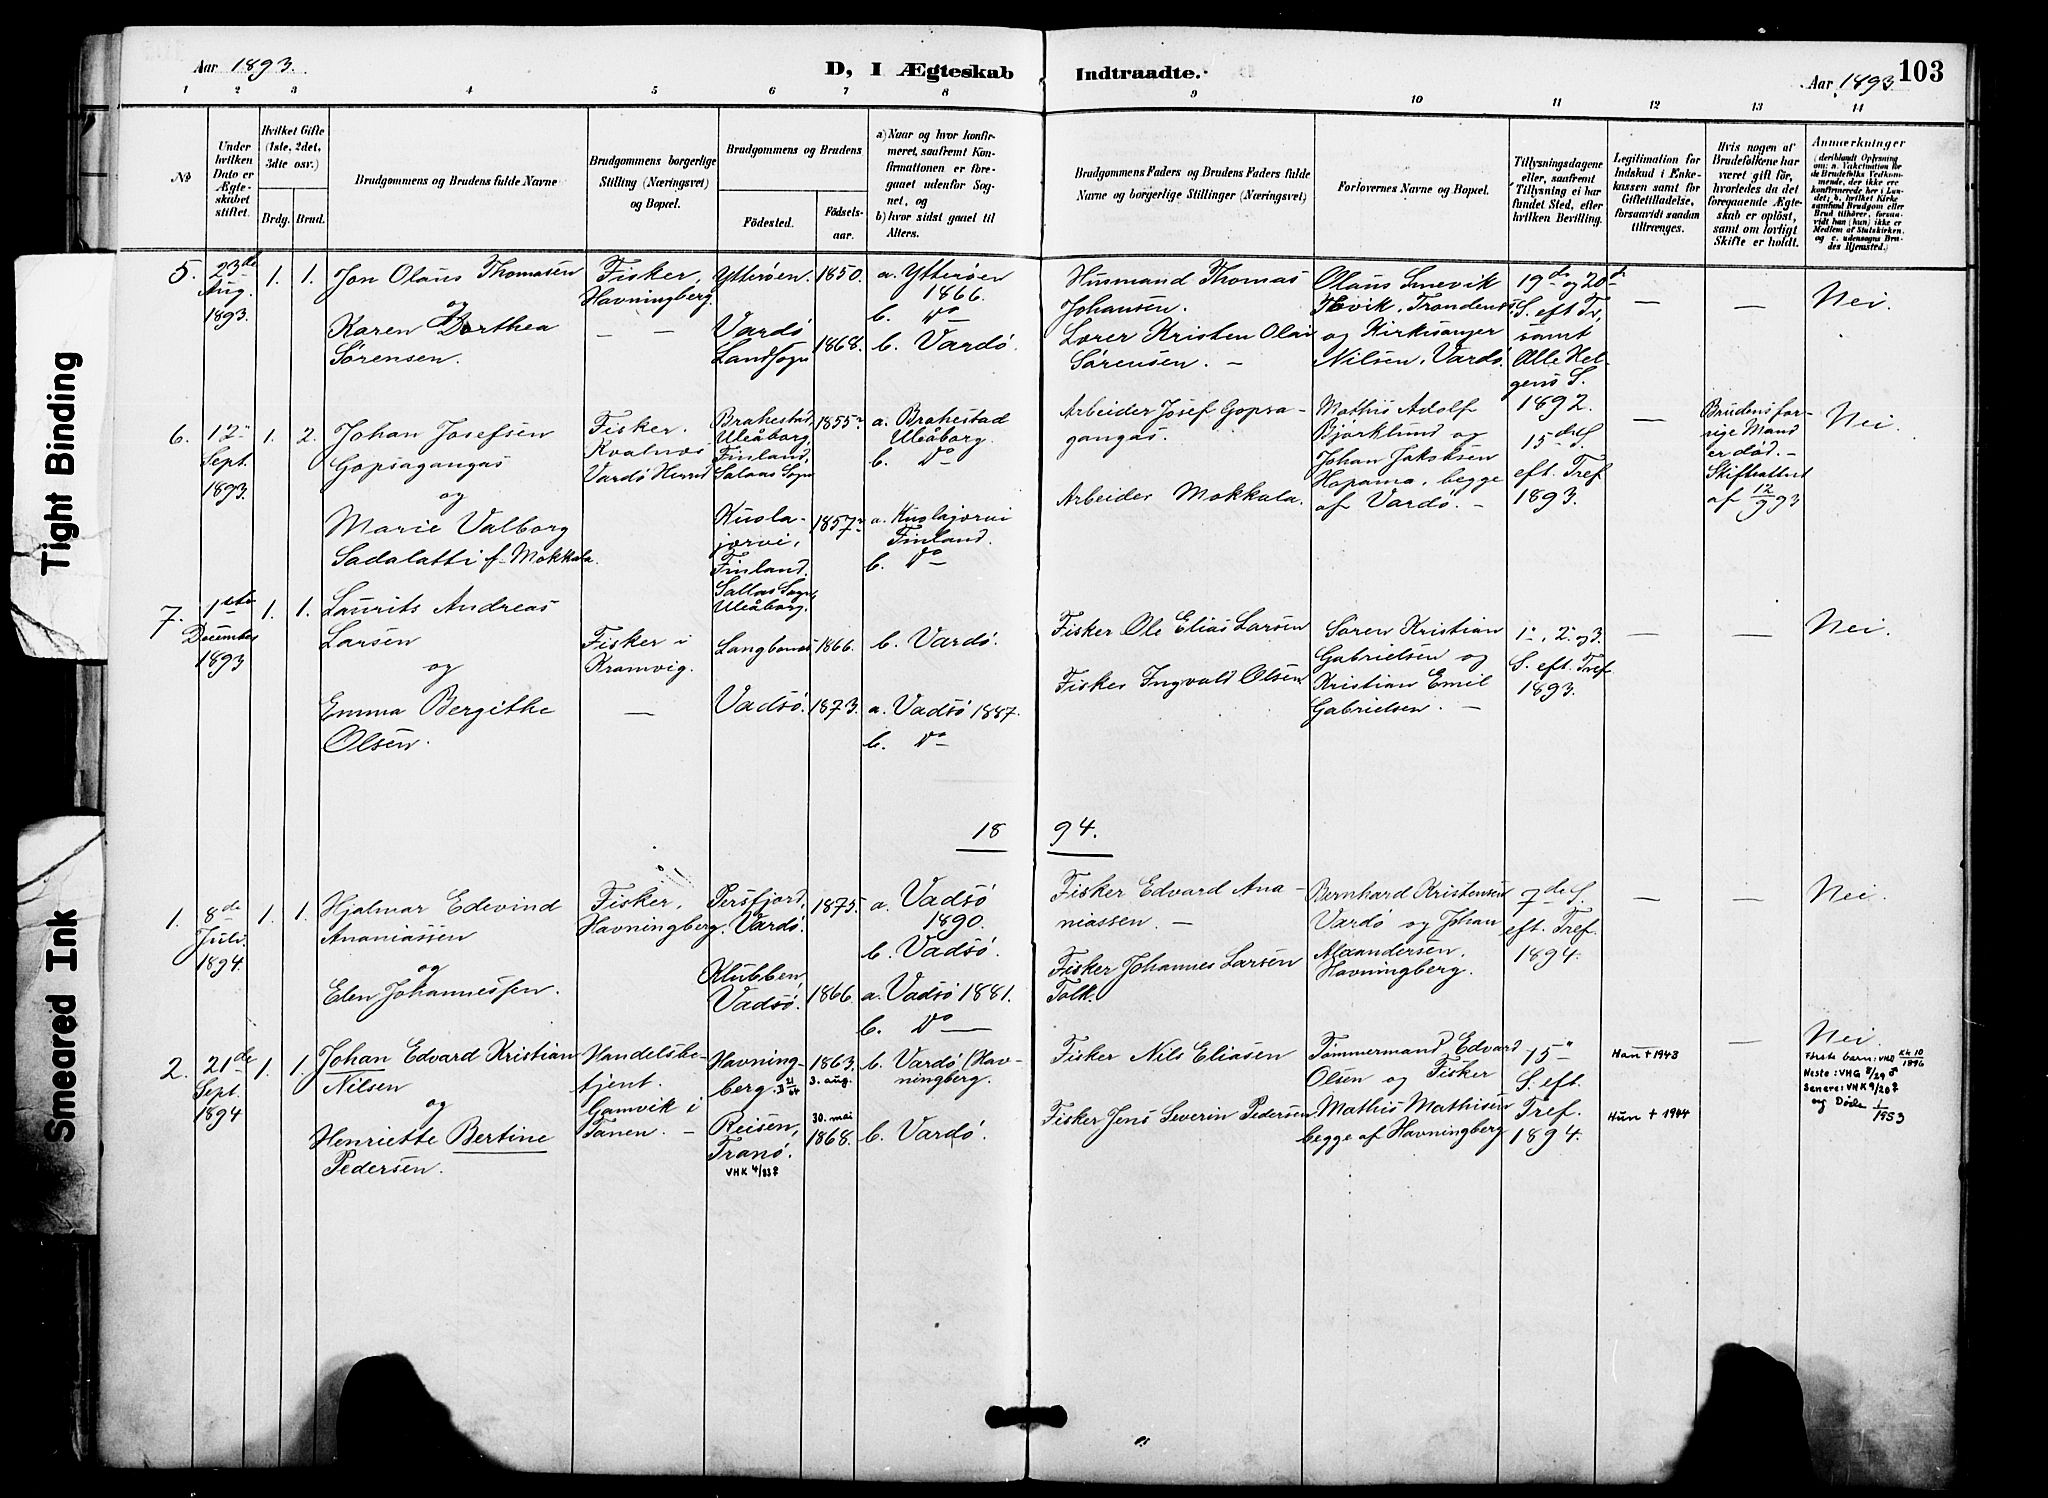 Tight Binding
Smeared Ink
Aar 1893.
D, I Ægteskab
Indtraadte.
Aar 1893
103
1 2 3 4 5 6 7 8 9 10 11 12 13 14
No
Under hvilken Dato er Ægteskabet stiftet.
Hvilket Gifte (1ste, 2det, 3die osv.)
Brdg. Brud.
Brudgommens og Brudens fulde Navne
Brudgommens borgerlige Stilling (Næringsvei) og Bopæl.
Brudgommens og Brudens
Födested.
Födselsaar.
a) Naar og hvor konfirmeret, saafremt Konfirmationen er foregaaet udenfor Sognet, og
b) hvor sidst gaaet til Alters.
Brudgommens Faders og Brudens Faders fulde Navne og borgerlige Stillinger (Næringsvei)
Forlovernes Navne og Bopæl.
Tillysningsdagene eller, saafremt Tillysning ei har fundet Sted, efter hvilken Bevilling.
Legitimation for Indskud i Enkekassen samt for Giftetilladelse, forsaavidt saadan tiltrænges.
Hvis nogen af Brudefolkene har været gift før, hvorledes da det foregaaende Ægteskab er oplöst, samt om lovligt Skifte er holdt.
Anmærkninger
(deriblandt Oplysning om: a. Vakcination for de Brudefolks Vedkommende, der ikke ere konfirmerede her i Landet; b. hvilket Kirkesamfund Brudgom eller Brud tilhører, forsaavidt han (hun) ikke er Medlem af Statskirken, og c. udensogns Brudes Hjemsted.
5.
23de
Aug.
1893.
1. 1.
Jon Olaus Thomasen
og
Karen Dorthea
Sörensen.
Fisker,
Havningberg.
— —
Ytterøen.
Vardö
Landsogn
1850.
1868.
a. Ytterøen
1866.
b. Do
b. Vardö.
Husmand Thomas
Johansen.
Lorer Kristen Olai
Sörensen. —
Olaus Smevik
Tovik, Trondenes
og Kirkesanger
Nilsen, Vardö.
19de og 20de
S. eft Tr,
samt
Alle Hel-
gens S.
1892.
— —
Nei.
6.
12te
Sept.
1893.
1. 2.
Johan Josefsen
Gopsagangas
og
Marie Valborg
Sadalatti f. Mokkala
Fisker.
Kvalnes
Vardö Herred
Brahestad,
Uleåborg,
Finland,
Salaas Sogn
Kuola-
jorvi,
Finland.
Sallas Sogn,
Uleåborg.
1855
1857
a. Brahestad
Uleåborg.
b. Do
a. Kuolajorvi
Finland.
b. Do
Arbeider Josef Gopsa-
gangas.
Arbeider Mokkala.
Mathis Adolf
Bjorklund og
Johan Jakobsen
Hopama, begge
af Vardö. —
15de S.
eft. Tref
1893.
—
Brudens for-
rige Mand
er död. —
Skifteattest
af 12/9 93
Nei.
7.
1ste
December
1893
1. 1.
Laurits Andreas
Larsen
og
Emma Bergithe
Olsen.
Fisker i
Kramvig.
—
Langbunes
Vadsö.
1866.
1873.
b. Vardö.
a. Vadsö 1887.
b. Do
Fisker Ole Elias Larsen
Fisker Ingvald Olsen
Sören Kristian
Gabrielsen og
Kristian Emil
Gabrielsen. —
1., 2. og 3.
S. eft. Tref
1893.
— —
Nei.
18 94.
1.
8de
Juli.
1894.
1. 1.
Hjalmar Edevind
Ananiassen
og
Elen Johannessen.
Fisker,
Havningberg.
Persfjord,
Vardö.
Klubben,
Vadsö.
1875.
1866.
a. Vadsö
1890.
b. Vadsö.
a. Vadsö 1881.
b. Do —
Fisker Edvard Ana-
niassen. —
Fisker Johannes Larsen
Talk.
Bernhard Kristensen
Vardö og Johan
Alexandersen.
Havningberg.
7de S.
eft. Tref.
1894.
— —
Nei.
2.
21de
Sept.
1894
1. 1.
Johan Edvard Kristian
Nilsen
og
Henriette Bertine
Pedersen.
Handelsbe-
tjent.
Gamvik i
Tanen. —
Havning-
berg.
Reisen,
Tranö.
VHK 4/83♀
1863.
3. aug.
30. mai
1868.
b. Vardö (Hav-
ningberg.
b. Vardö.
Fisker Nils Eliasen
Fisker Jens Severin Pedersen.
Tömmermand Edvard
Olsen og Fisker
Mathis Mathisen
begge af Havningberg
15
S. eft.
Tref.
1894.
Han + 1943
Hun + 1944
—
Nei.
Første barn: VHD KK 10/1896
Neste: VHG 8/29♂
Senere: VHK 9/20♀
og Døde 1/1953